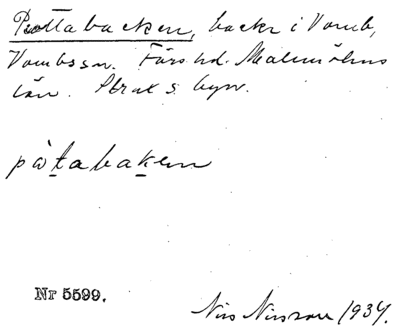 Pottabacken, backe i Vomb,
Vombs sn. Färs hd. Malmöhus
län. Strax s. byn.
påtabaken
Nr 5599.
Nils Nilsson 1934.